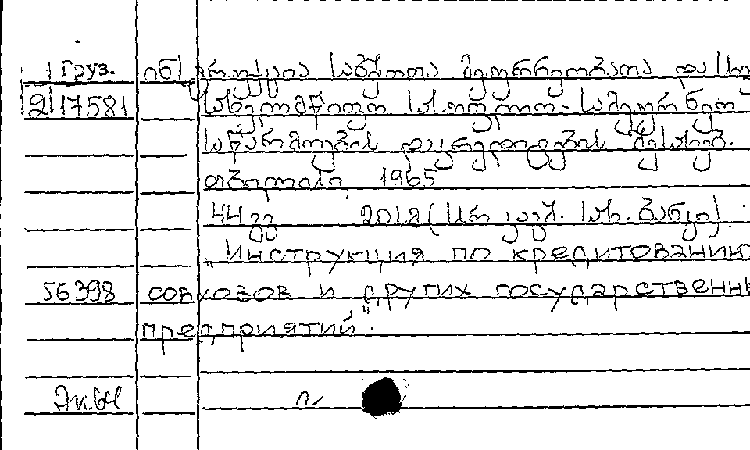 Груз. ინსტრუქცია საბჭოთა მეურნეობათა და სხვ.
2 17581 სახელმწიფო სასოფლო-სამეურნეო
საწარმოების დაკრედიტების შესახებ.
თბილისი, 1965
44 გვ. 2012 (სსრ კავშ. სახ. ბანკი).
„Инструкция по кредитованию
56398 совхозов и других государственн
предприятий".